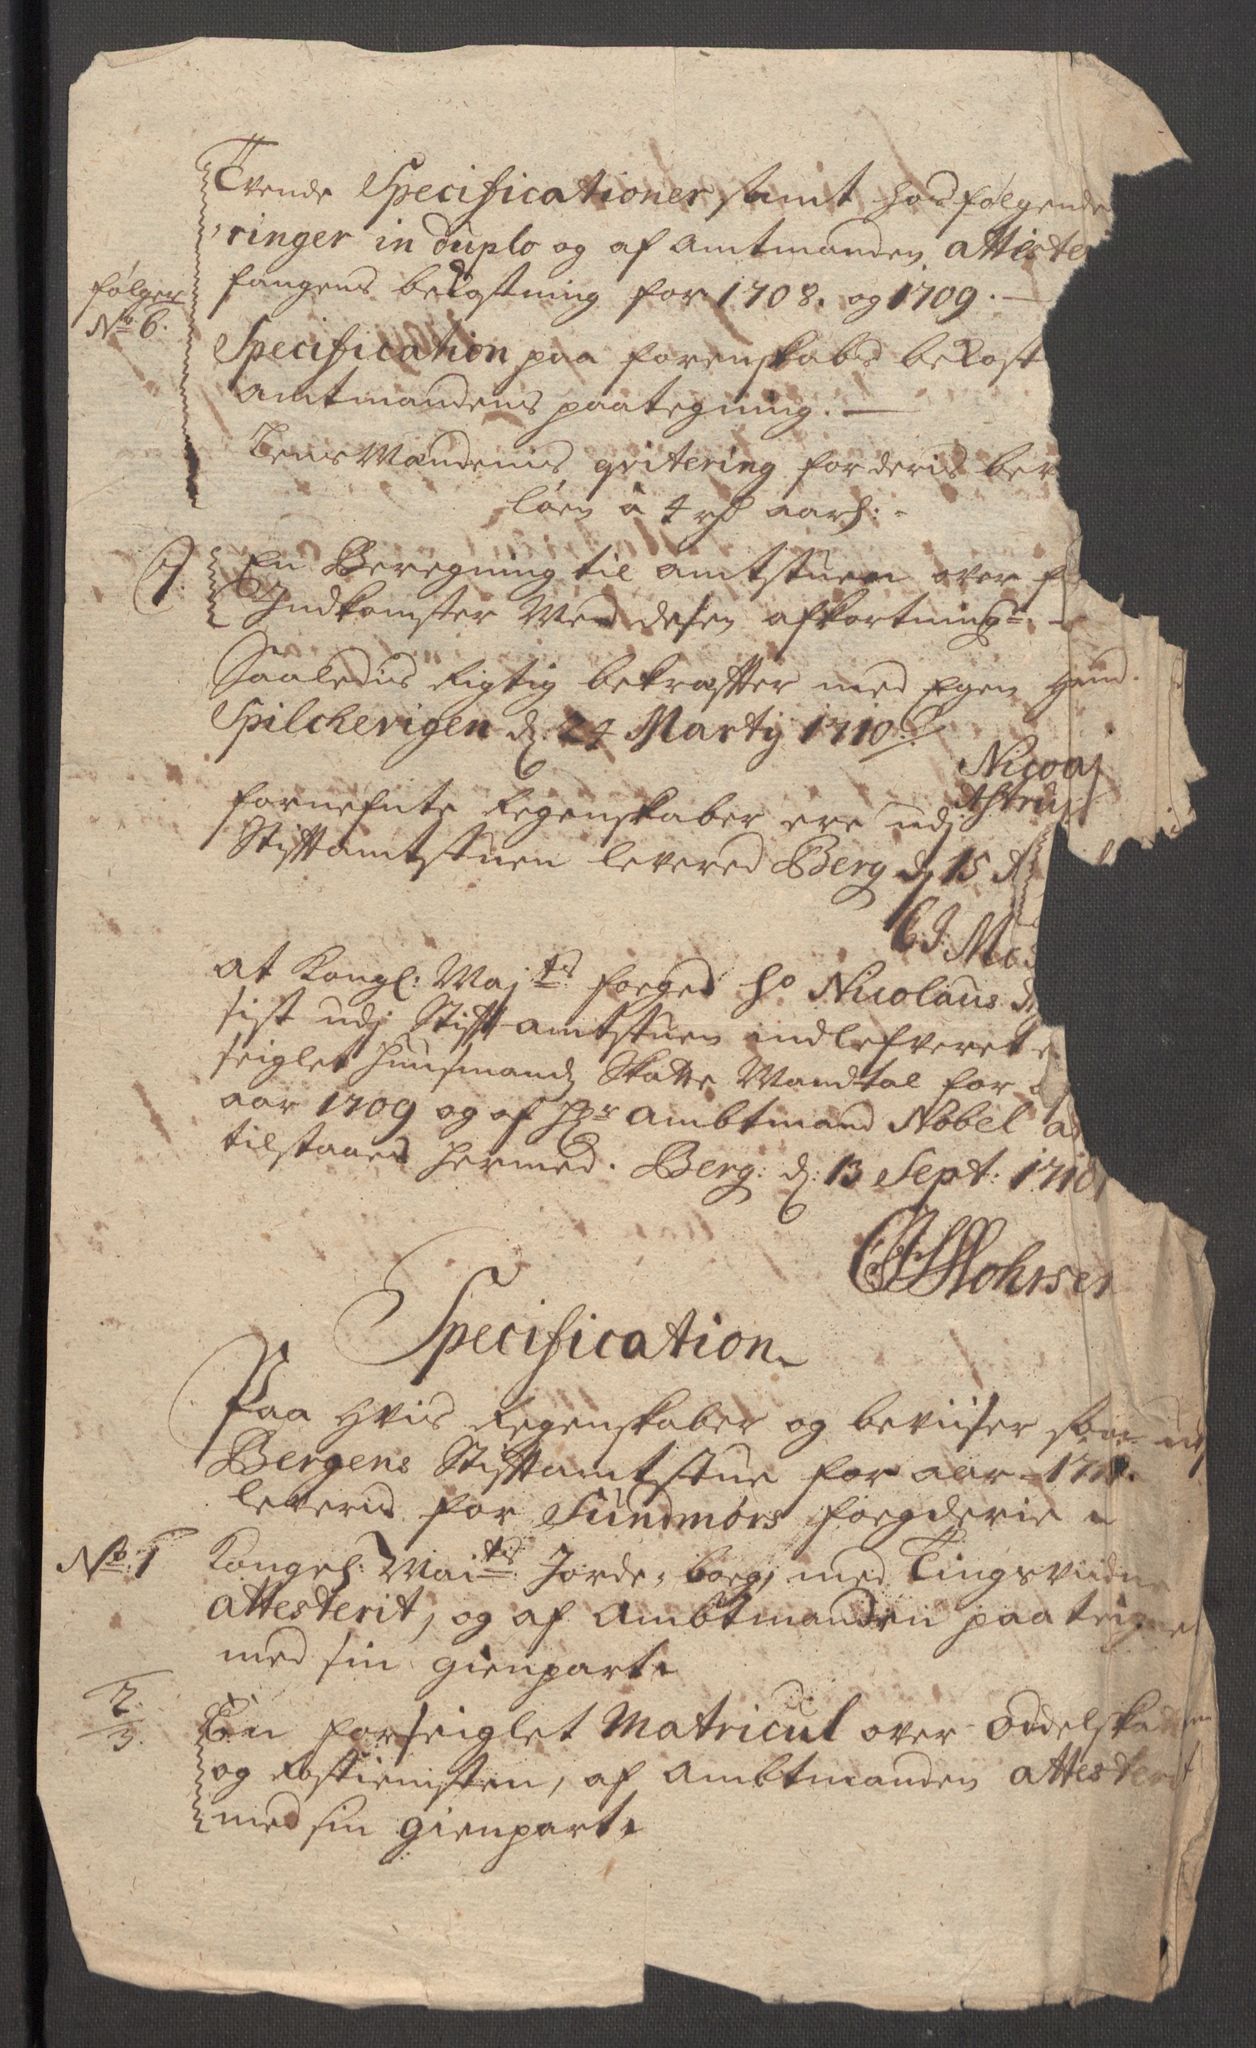 Tvende Specificationer samt hosfølgende
ringer in duplo og af Amtmanden atteste
fangens bekostning for 1708. og 1709.
følger
No 6.
Specification paa forenskabs bekost
Amtmandens paategning.
LensMandenis qvitering for deris ber
løen à 4 rd aarl:
7.
En Beregning til amtstuen over
Indkomster Med desen afkortning
Saaledis Rigtig bekræffter med Egen Hand.
Spilchevigen d. 24 Martij 1710
Nicola
Astru
fornefnte Regenskaber ere udj
Stiftamtstuen levered Berg d 15 A
C J. Mo
At Kongl: Maj:ts foeged Hr Nicolaus A
sist udj Stift amtstuen indlefveret
seiglet Huusmands Skatte Mandtal for
aar 1709 og af Hr Ambtmand Nobel a
tilstaaes hermed. Berg: d: 13 Sept: 1710
CJMohrsen
Specification
Paa Hvis Regenskaber og beviiser som ud
Bergens Stiftamtstue for aar 171
leveris for Sundmørs foegderie
No. 1
Kongel: Mai:ts Jorde-boeg, med Tingsvidne
attesterit, og af Ambtmanden paateigne
med sin gienpart
2.
3.
En forseiglet Matricul over Oddelskatten
og Rostienisten, af Ambtmanden attesterit
med sin gienpart